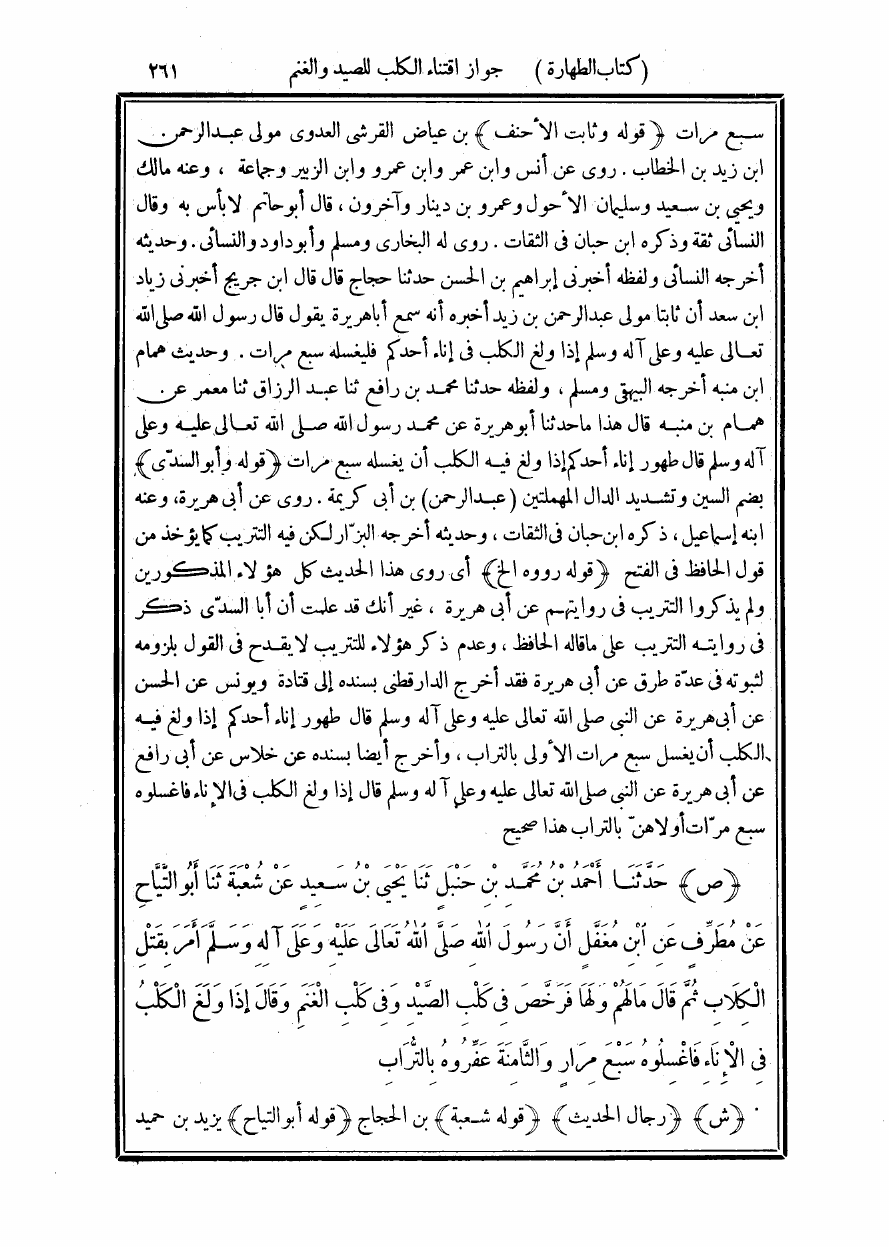 (كتاب الطهارة) جواز اقتناء الكلب للصيد والغنم ٢٦١
سبع مرات ﴿قوله وثابت الأحنف﴾ بن عياض القرشى العدوى مولى عبدالرحمن
ابن زيد بن الخطاب . روى عن أنس وابن عمر وابن عمرو وابن الزبير وجماعة ، وعنه مالك
ويحيى بن سعيد وسليمان الأحول وعمرو بن دينار وآخرون ، قال أبوحاتم لابأس به وقال
النسائى ثقة وذكره ابن حبان فى الثقات . روى له البخارى ومسلم وأبوداود والنسائى . وحديثه
أخرجه النسائى ولفظه أخبرنى إبراهيم بن الحسن حدثنا حجاج قال قال ابن جريج أخبرنى زياد
ابن سعد أن ثابتا مولى عبدالرحمن بن زيد أخبره أنه سمع أباهريرة يقول قال رسول الله صلى الله
تعالى عليه وعلى آله وسلم إذا ولغ الكلب فى إناء أحدكم فليغسله سبع مرات . وحديث همام
ابن منبه أخرجه البيهقى ومسلم ، ولفظه حدثنا محمد بن رافع ثنا عبد الرزاق ثنا معمر عن
همام بن منبه قال هذا ماحدثنا أبوهريرة عن محمد رسول الله صلى الله تعالى عليه وعلى
آله وسلم قال طهور إناء أحدكم إذا ولغ فيه الكلب أن يغسله سبع مرات ﴿قوله وأبوالسدّى﴾
بضم السين وتشديد الدال المهملتين (عبدالرحمن) بن أبى كريمة . روى عن أبى هريرة، وعنه
ابنه إسماعيل ، ذكره ابن حبان فى الثقات ، وحديثه أخرجه البزّار لكن فيه التتريب كما يؤخذ من
قول الحافظ فى الفتح ﴿قوله رووه الخ﴾ أى روى هذا الحديث كل هؤلاء المذكورين
ولم يذكروا التتريب فى روايتهم عن أبى هريرة ، غير أنك قد علمت أن أبا السدّى ذكر
فى روايته التتريب على ماقاله الحافظ ، وعدم ذكر هؤلاء للتتريب لايقدح فى القول بلزومه
لثبوته فى عدّة طرق عن أبى هريرة فقد أخرج الدارقطنى بسنده إلى قتادة ويونس عن الحسن
عن أبى هريرة عن النبى صلى الله تعالى عليه وعلى آله وسلم قال طهور إناء أحدكم إذا ولغ فيه
الكلب أن يغسل سبع مرات الأولى بالتراب ، وأخرج أيضا بسنده عن خلاس عن أبى رافع
عن أبى هريرة عن النبى صلى الله تعالى عليه وعلى آله وسلم قال إذا ولغ الكلب فى الإناء فاغسلوه
سبع مرّات أولاهنّ بالتراب هذا صحيح
﴿ص﴾ حَدَّثَنَا أَحْمَدُ بْنُ مُحَمَّدِ بْنِ حَنْبَلٍ ثَنَا يَحْيَى بْنُ سَعِيدٍ عَنْ شُعْبَةَ ثَنَا أَبُو التَّيَّاحِ
عَنْ مُطَرِّفٍ عَنِ ابْنِ مُغَفَّلٍ أَنَّ رَسُولَ اللهِ صَلَّى اللهُ تَعَالَى عَلَيْهِ وَعَلَى آلِهِ وَسَلَّمَ أَمَرَ بِقَتْلِ
الْكِلَابِ ثُمَّ قَالَ مَالَهُمْ وَلَهَا فَرَخَّصَ فِى كَلْبِ الصَّيْدِ وَفِى كَلْبِ الْغَنَمِ وَقَالَ إِذَا وَلَغَ الْكَلْبُ
فِى الْإِنَاءِ فَاغْسِلُوهُ سَبْعَ مِرَارٍ وَالثَّامِنَةَ عَفِّرُوهُ بِالتُّرَابِ
﴿ش﴾ ﴿رجال الحديث﴾ ﴿قوله شعبة﴾ بن الحجاج ﴿قوله أبوالتياح﴾ يزيد بن حميد